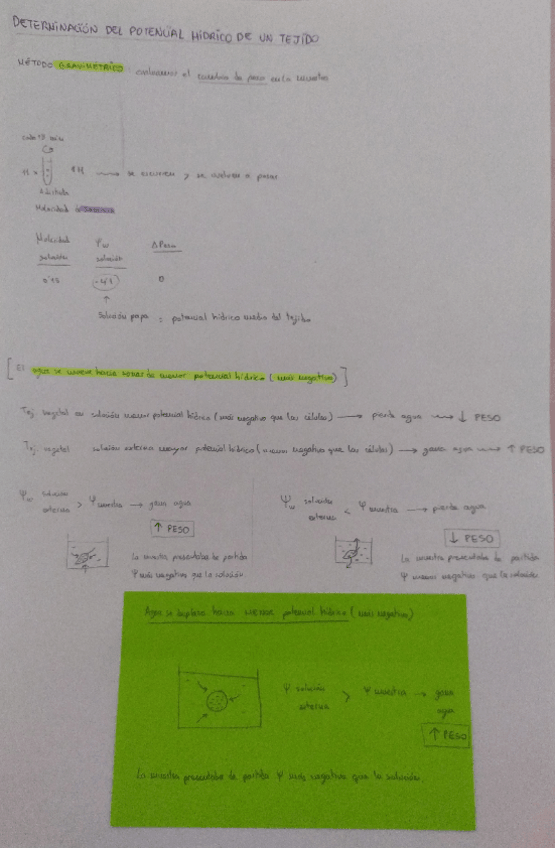 DETERMINACIÓN DEL POTENCIAL HÍDRICO DE UN TEJIDO
MÉTODO GRAVIMÉTRICO evaluamos el cambio de peso en la muestra
cada 15 min
se escurren y se vuelven a pesar
Molaridad
Molaridad Ψw Δ Peso
solución solución
0'15 0
Solución papa = potencial hídrico medio del tejido
[El agua se mueve hacia zonas de menor potencial hídrico (más negativo)]
Tej. vegetal en solución menor potencial hídrico (más negativo que las células) → pierde agua → ↓ PESO
Tej. vegetal solución externa mayor potencial hídrico (menos negativo que las células) → gana agua → ↑ PESO
Ψw solución externa > Ψ muestra → gana agua
↑ PESO
La muestra presentaba de partida
Ψ más negativo que la solución.
Ψw solución externa < Ψ muestra → pierde agua
↓ PESO
La muestra presentaba de partida
Ψ menos negativo que la solución
Agua se desplaza hacia menor potencial hídrico (más negativo)
Ψ solución externa > Ψ muestra → gana agua
↑ PESO
La muestra presentaba de partida Ψ más negativo que la solución.